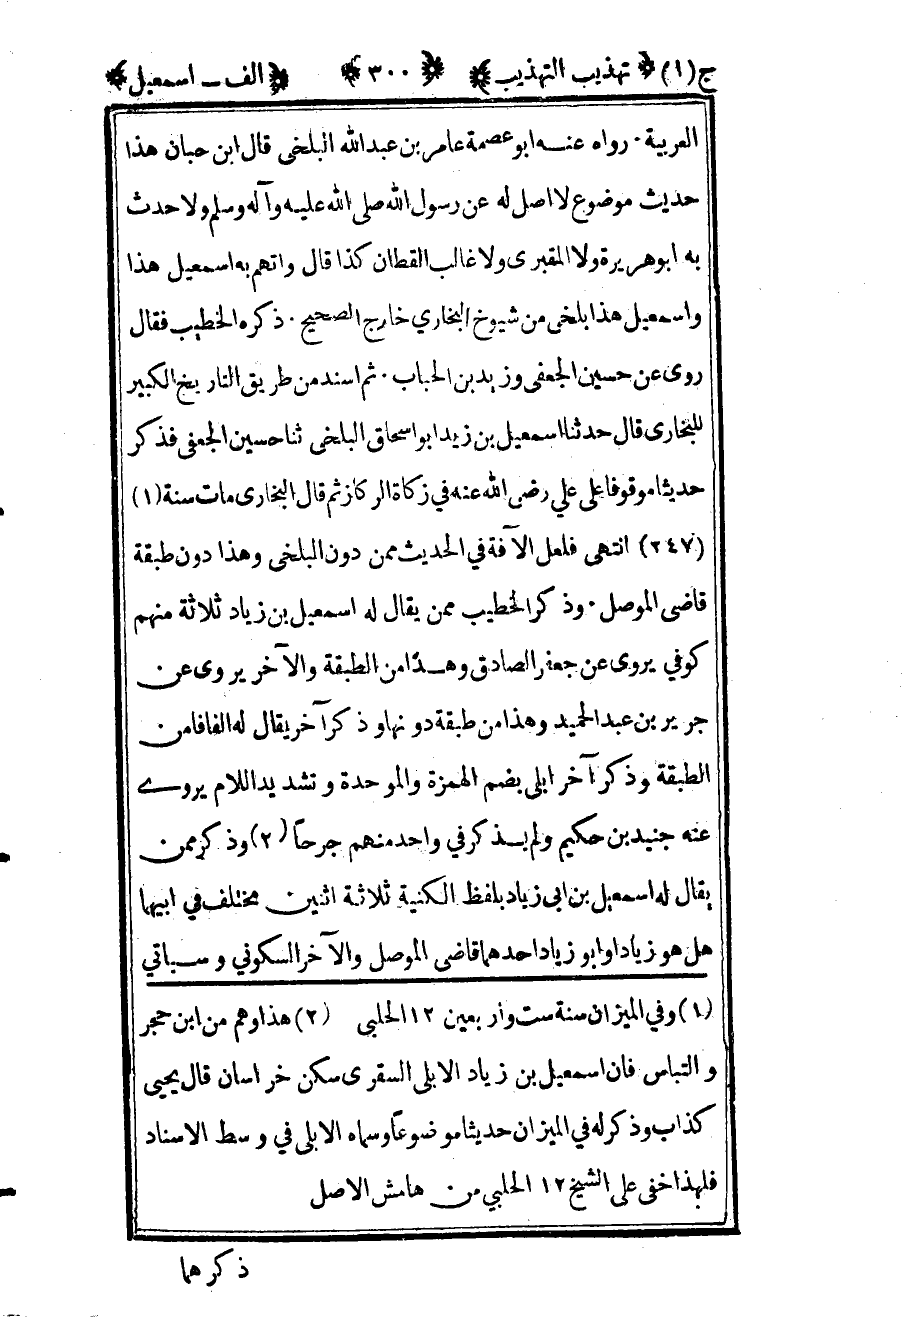 ج(١) ﴿ تهذيب التهذيب ﴾ ﴿ ٣٠٠ ﴾ ﴿ الف ــ اسمعيل ﴾
العربية٠ رواه عنه ابو عصمة عامر بن عبدالله البلخى قال ابن حبان هذا
حديث موضوع لا اصل له عن رسول الله صلى الله عليه وآله وسلم ولا حدث
به ابو هريرة ولا المقبرى ولا غالب القطان كذا قال واتهم به اسمعيل هذا
واسمعيل هذا بلخى من شيوخ البخاري خارج الصحيح٠ ذكره الخطيب فقال
روى عن حسين الجعفى وزيد بن الحباب٠ ثم اسند من طريق التاريخ الكبير
للبخارى قال حدثنا اسمعيل بن زيد ابو اسحاق البلخى ثنا حسين الجعفى فذكر
حديثا موقوفا على علي رضى الله عنه في زكاة الركاز ثم قال البخارى مات سنة (١)
(٢٤٧) انتهى فلعل الآفة في الحديث ممن دون البلخى وهذا دون طبقة
قاضى الموصل٠ وذكر الخطيب ممن يقال له اسمعيل بن زياد ثلاثة منهم
كوفي يروى عن جعفر الصادق وهذا من الطبقة والآخر يروى عن
جرير بن عبد الحميد وهذا من طبقة دونها وذكر آخر يقال له الفافا من
الطبقة وذكر آخر ابلى بضم الهمزة والموحدة وتشديد اللام يروى
عنه جنيد بن حكيم ولم يذكر في واحد منهم جرحاً (٢) وذكر ممن
يقال له اسمعيل بن ابى زياد بلفظ الكنية ثلاثة اثنين مختلف في ابيها
هل هو زياد او ابو زياد احدهما قاضى الموصل والآخر السكوني وسياتي
(١) وفي الميزان سنة ست واربعين ١٢ الحلبى (٢) هذا وهم من ابن حجر
والتباس فان اسمعيل بن زياد الابلى السقرى سكن خراسان قال يحيى
كذاب وذكر له في الميزان حديثا موضوعاً وسماه الابلى في وسط الاسناد
فلهذا خفى على الشيخ ١٢ الحلبي من هامش الاصل
ذكرهما